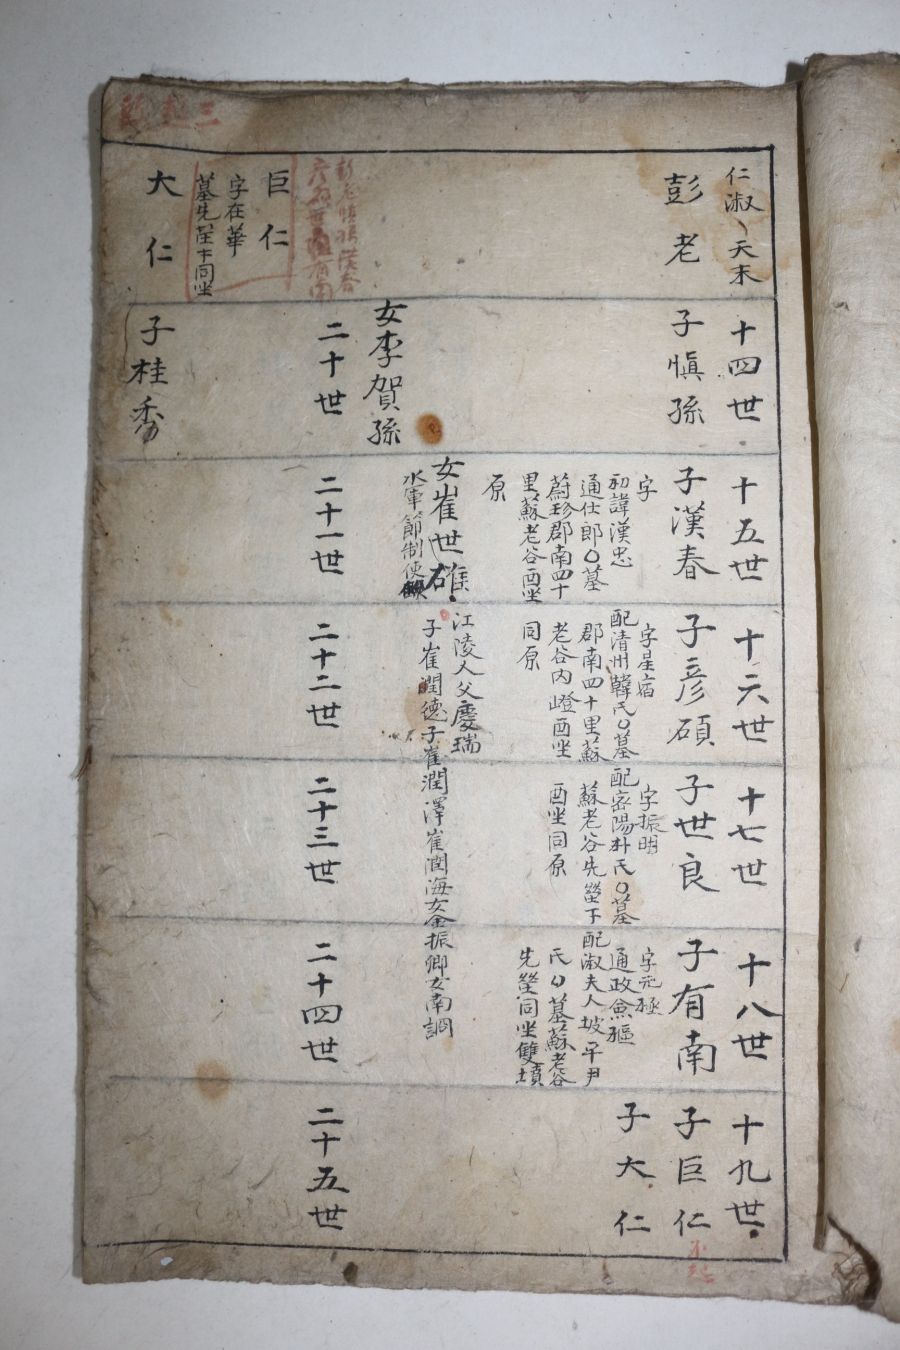 三
仁淑 天末
彭老
十四世
子愼孫
十五世
子漢春
字
初諱漢忠
通仕郎〇墓
蔚珍郡南四十
里蘇老谷酉坐
原
十六世
子彦碩
字星宿
配清州韓氏〇墓
郡南四十里蘇
老谷內嶝酉坐
同原
十七世
子世良
字振明
配密陽朴氏〇墓
蘇老谷先塋下
酉坐同原
十八世
子有南
字元極
通政僉樞
配淑夫人坡平尹
氏〇墓蘇老谷
先塋同坐雙墳
十九世
子巨仁
子大仁
女李賀孫
女崔世碓
水軍節制使
江陵人父慶瑞
子崔潤德子崔潤澤崔潤海女金振卿女南調
彭老愼孫漢春
彦碩世良有南
巨仁
字在華
墓先塋下同坐
大仁
二十世
子桂秀
二十一世
二十二世
二十三世
二十四世
二十五世